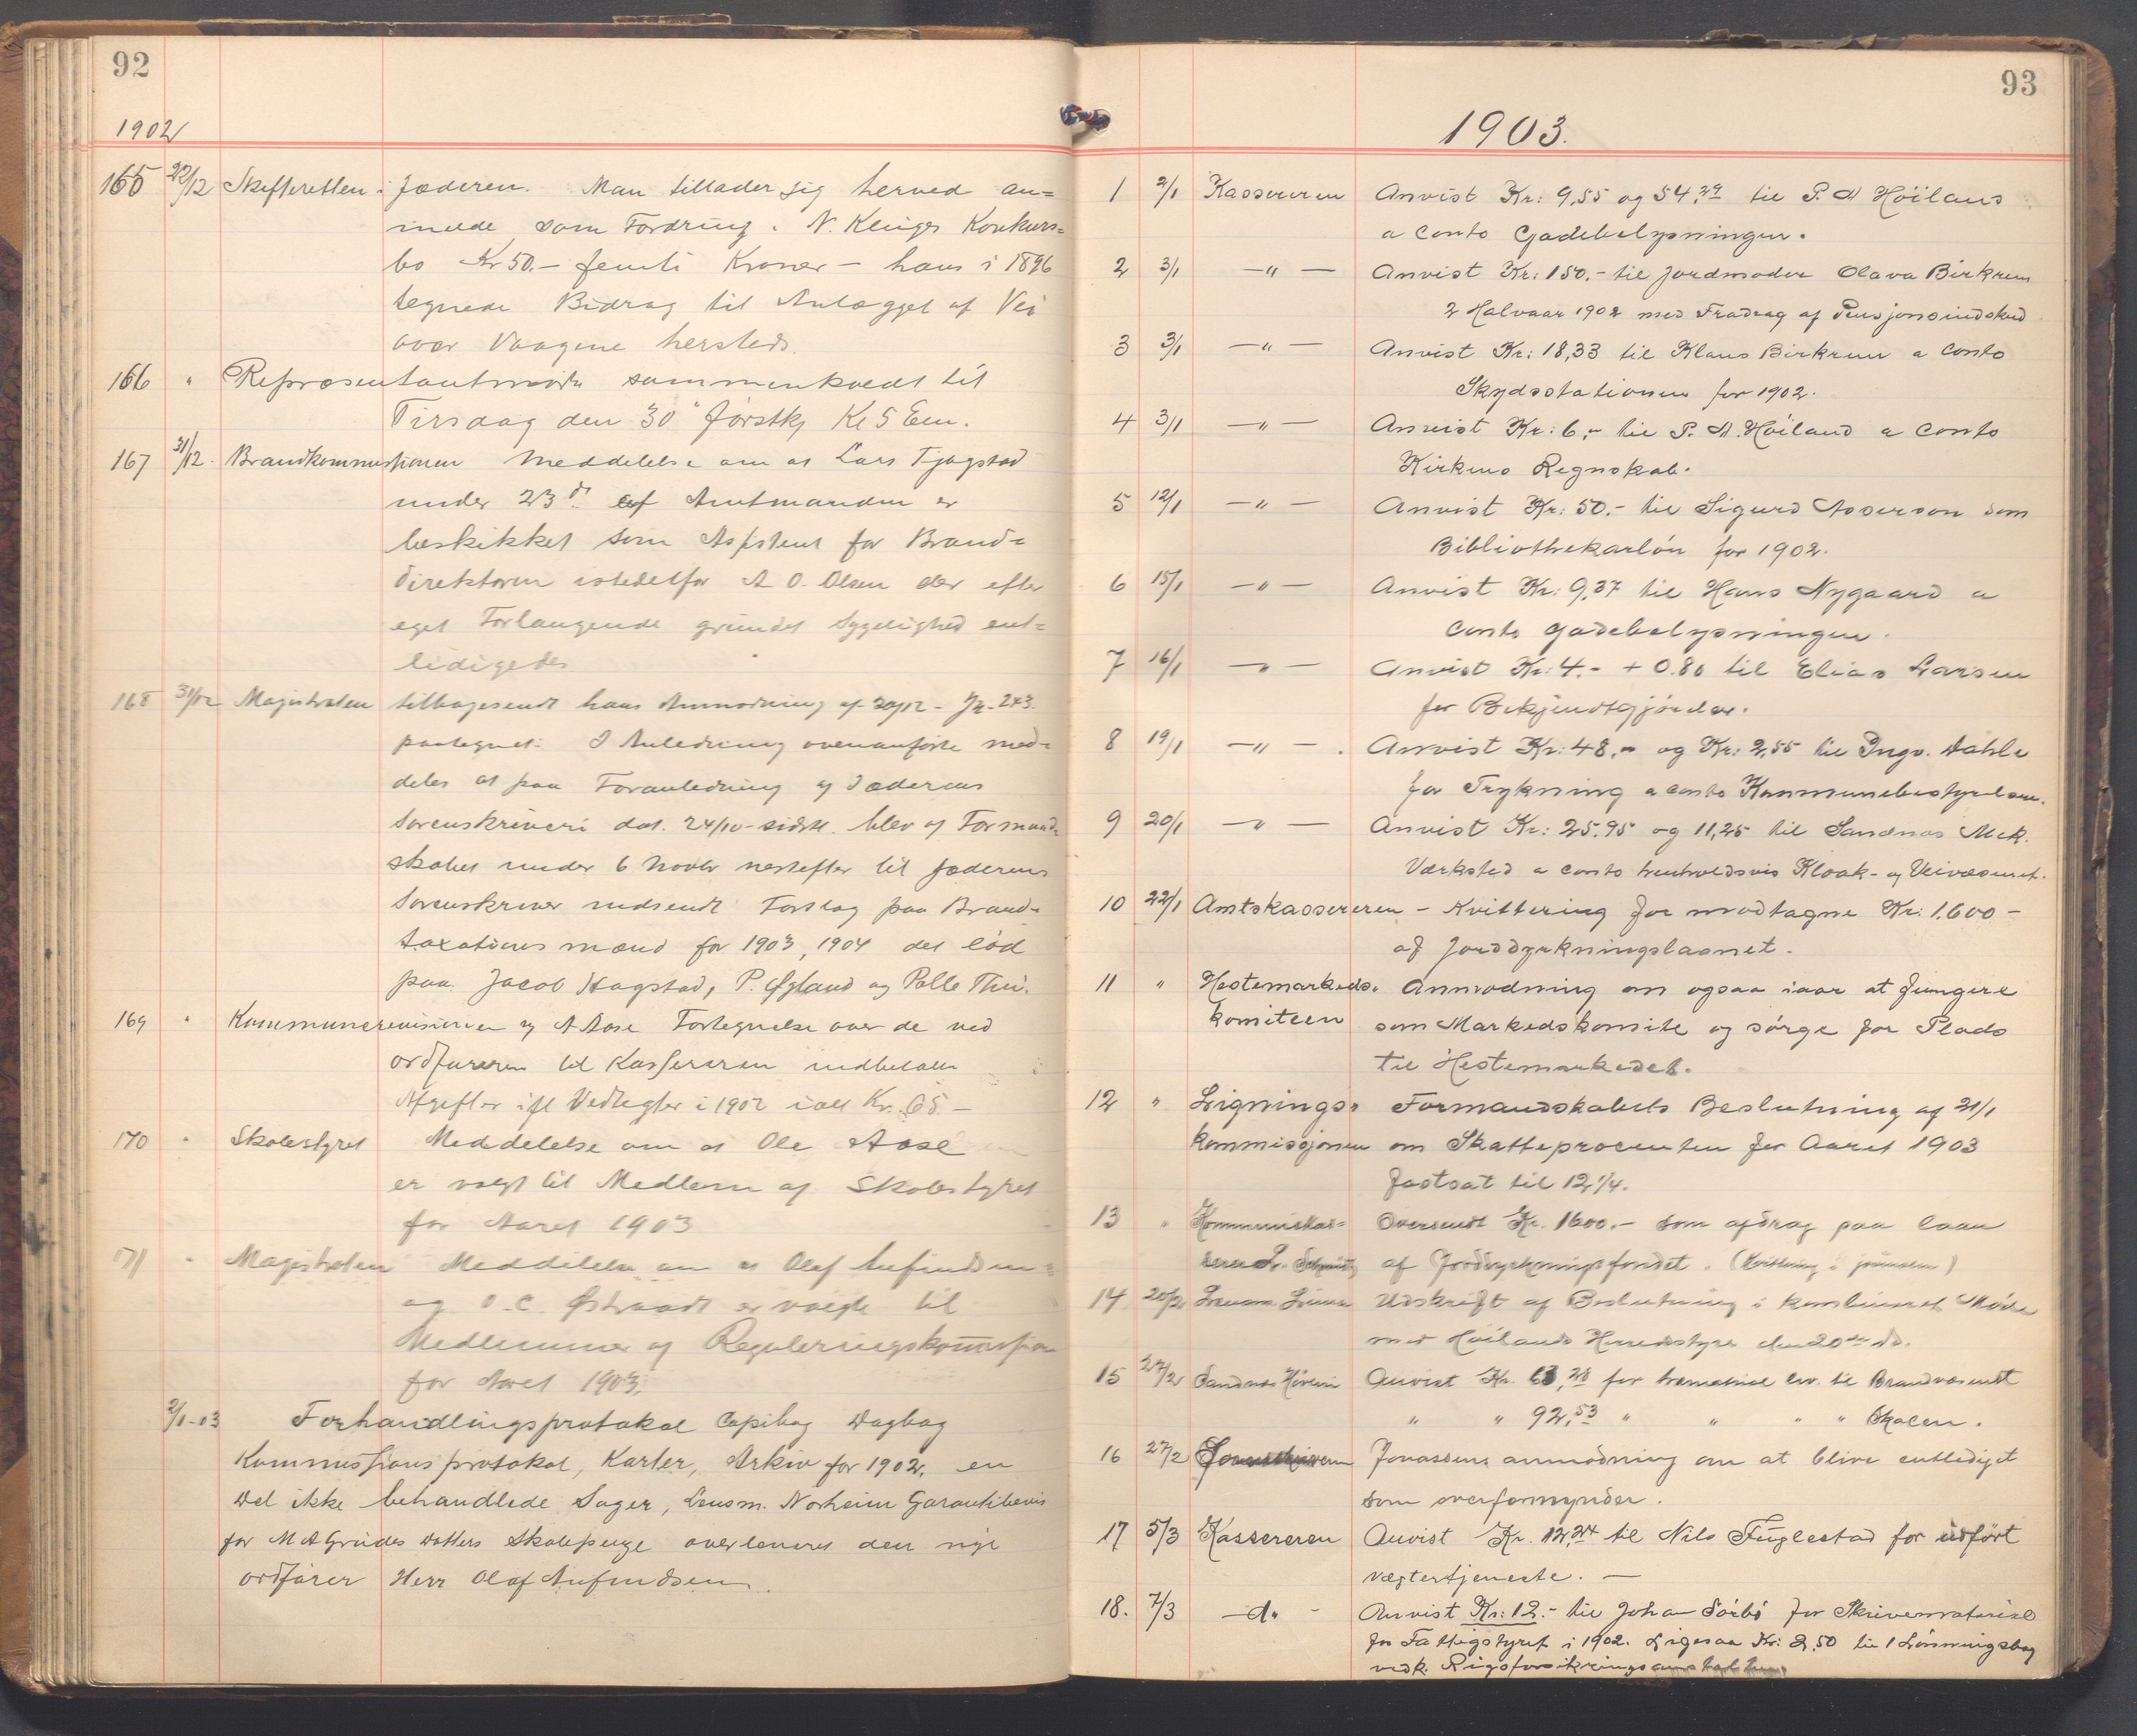 92
1902
165 22/12 Skifteretten i Jæderen. Man tillader sig herved an=
melde som Fordring i N. Kluges Konkurs=
bo Kr 50.- femti Kroner - hans i 1896
tegnede Bidrag til Anlægget af Vei
over Vaagene hersteds.
166 " Repræsentantmøde sammenkaldt til
Tirsdag den 30' førstk. Kl 5 Em.
167 31/12. Brandkommissionen Meddelelse om at Lars Tjøgstad
under 23d' af Amtmanden er
beskikket som Assistent for Brand=
direktøren istedetfor A O. Olsen der efter
eget Forlangende grundet Sygelighed ent=
lediges
168 31/12 Magistraten tilbagesendt hans Anmodning af 30/12 - Jr. 243
paategnet: I Anledning ovenanførte med=
deles at paa Foranledning af Jæderens
Sorenskriveri dat. 24/10 sidstl. blev af Formand=
skabet under 6 Novbr næstefter til Jæderens
Sorenskriver indsendt Forslag paa Brand=
taxationsmænd for 1903, 1904 det lød
paa Jacob Hagstad, P. Øgland og Palle Thu.
169 " Kommunerevisionen og A Aase Fortegnelse over de ved
ordføreren til Kassereren indbetalte
Afgifter ifl Vedtegter i 1902 ialt Kr. 65.-
170 " Skolestyret Meddelelse om at Ole Aase
er valgt til Medlem af Skolestyret
for Aaret 1903
171 " Magistraten Meddelelse om at Olaf Aufindsen
og O.C. Østraadt er valgte til
Medlemmer af Reguleringskommission
for Aaret 1903.
2/1-03 Forhandlingsprotokol Copibog Dagbog
Kommissionsprotokol, Karter, Arkiv for 1902, en
Del ikke behandlede Sager, Lensm. Norheim Garantibevis
for M A Grudes Datters Skolepenge overleveret den nye
ordfører Herr Olaf Aufindsen.
93
1903.
1 2/1 Kassereren Anvist Kr: 9,55 og 54,29 til P. M Höiland
a conto Gadebelysningen.
2 3/1 -"- Anvist Kr: 150.- til Jordmoder Olava Birkrem
2 Halvaar 1902 med Fradrag af Pensjonsindskud
3 3/1 -"- Anvist Kr: 18,33 til Klaus Birkrem a conto
Skydsstationen for 1902.
4 3/1 -"- Anvist Kr: 6,- til P. M. Höiland a conto
Kirkens Regnskab.
5 12/1 -"- Anvist Kr: 50.- til Sigurd Asserson som
Bibliothekarlön for 1902.
6 15/1 -"- Anvist Kr: 9,37 til Hans Nygaard a
conto Gadebelysningen.
7 16/1 -"- Anvist Kr: 4.- + 0.80 til Elias Larsen
for Bekjendtgjörelse.
8 19/1 -"- Anvist Kr: 48,- og Kr: 2,55 til Ingv. Dahle
for Trykning a conto Kommunebestyrelsen.
9 20/1 -"- Anvist Kr: 25.95 og 11,25 til Sandnæs Mek.
Værksted a conto henholdsvis Kloak- og Veivæsenet.
10 22/1 Amtskassereren - Kvittering for modtagne Kr: 1.600 -
af Jorddyrkningslaanet.
11 " Hestemarkeds= Anmodning om ogsaa iaar at fungere
komiteen som Markedskomite og sörge for Plads
til Hestemarkedet.
12 " Lignings= Formandskabets Beslutning af 21/1
kommissjonen om Skatteprocenten for Aaret 1903
fastsat til 12 1/4.
13 " Kommunekas=
Oversendt Kr. 1600.- som afdrag paa laan
serer Schmitz af Jorddyrkningsfondet. (Kvittering i journalen)
14 20/2 Udskrift af Beslutning i kombineret Möde
med Höilands Herredstyre den 20de ds.
15 27/2 Sandnæs Anvist Kr. 63,28 for lev. til Brandvæsenet
" " 92,53 " " " " Skolen.
16 27/2 Jonassens anmodning om at blive entlediget
som overformynder.
17 5/3 Kassereren Anvist Kr. 12,24 til Nils Fuglestad for udført
vægtertjeneste. -
18. 7/3 -d.- Anvist Kr: 12.- til Johan Sörbö for Skrivemateriel
for Fattigstyret i 1902. Ligesaa Kr: 2,50 til 1 Lönningsbog
vedk. Rigsforsikringsanstalten.